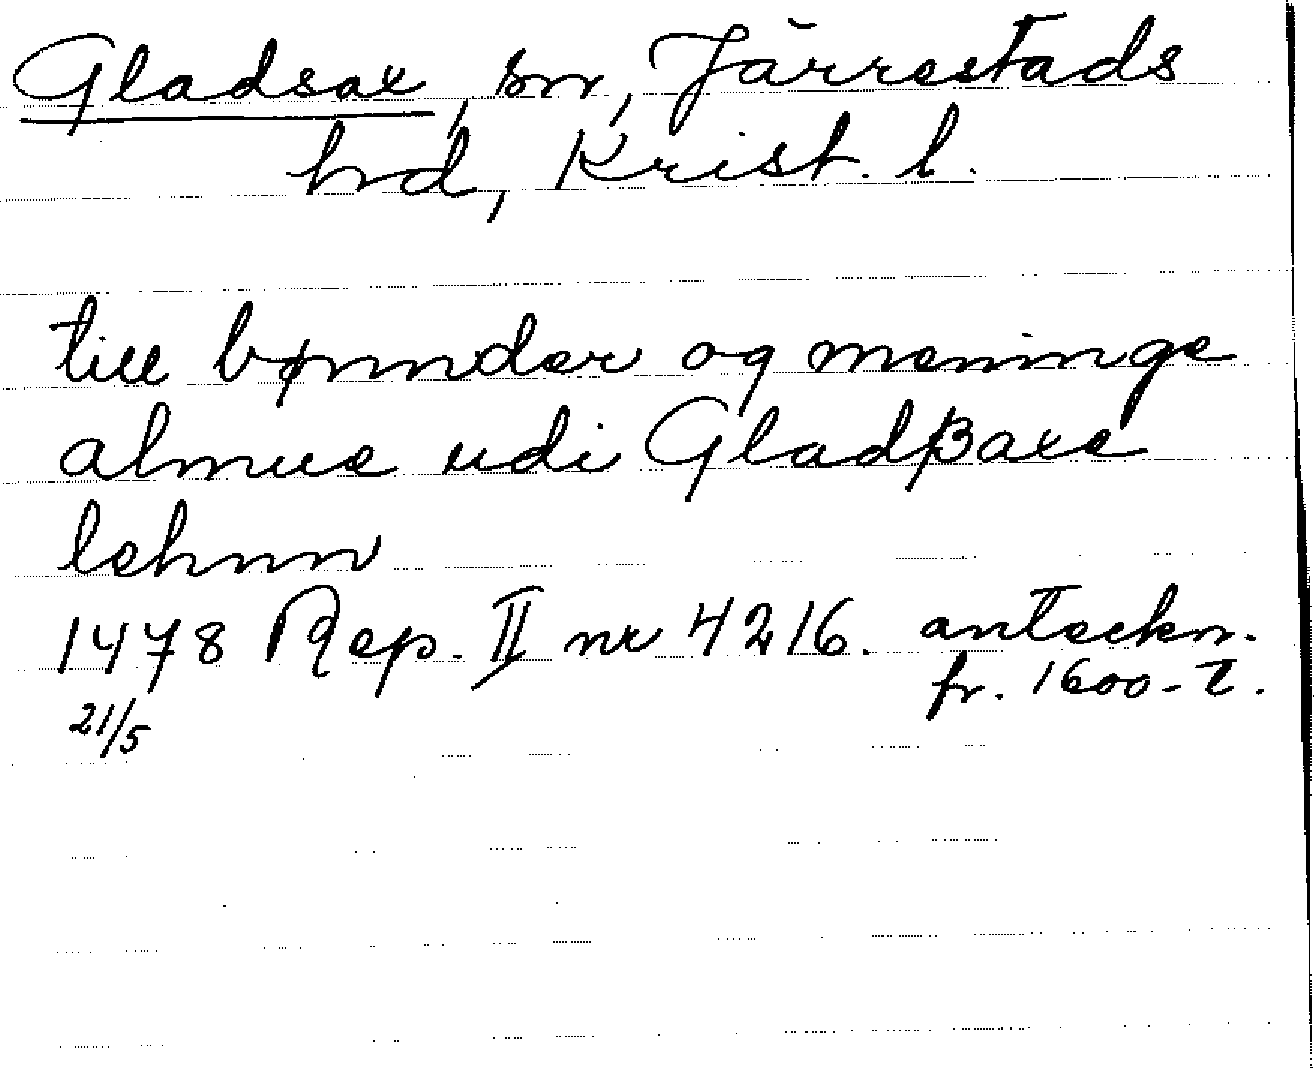 Gladsax, sn, Järrestads
hrd, Krist. l.
till bønnder og meninge
almue udi Gladßaxe
lehnn
1478 Rep. II nr 4216. anteckn.
fr. 1600-t.
21/5